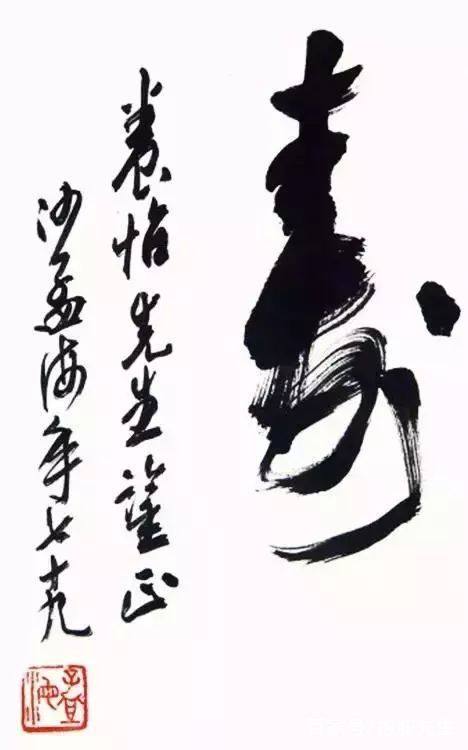 寿
養怡先生鑑正
沙孟海年七十九